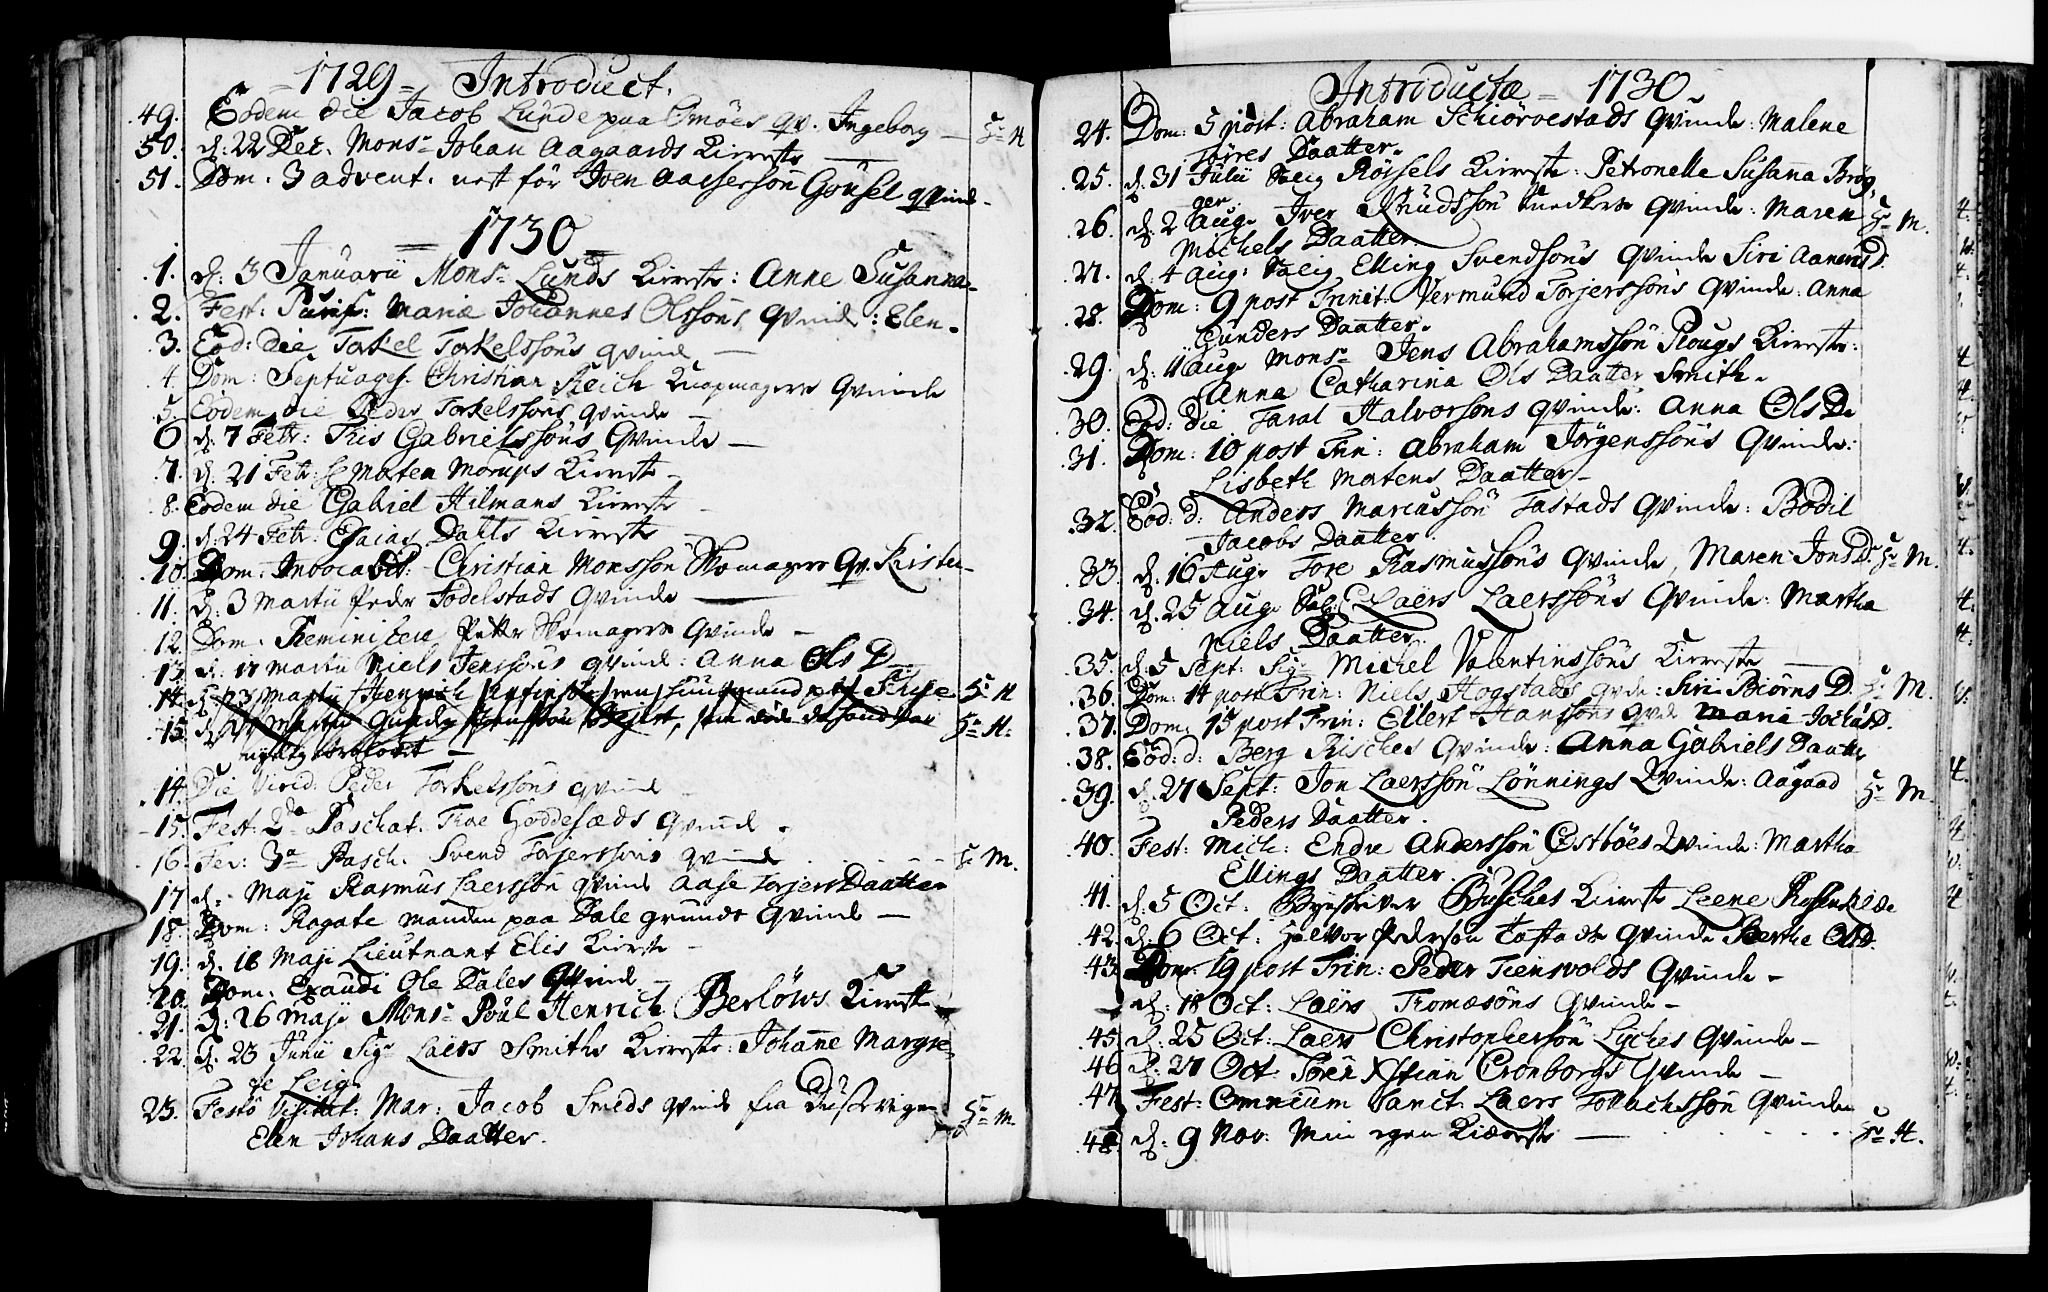 1729 = Introduct.
49. Eodem die Jacob Lunde paa Omöes qv. Ingeborg — Hr H
50. d: 22 Dec. Monsr Johan Aagaards Kierrest —
51. Dom. 3 advent. nest för Iven Aachessön Gousel qvind
= 1730 =
1. d: 3 Januarii Monsr Lunds Kierest: Anne Susanna
2. Fest: Purif: Mariæ Johannes Olssöns qvind: Elen.
3. Eod: die Torkel Torkelssöns qvind —
4. Dom: Septuages. Christian Reich Knapmagers Qvinde
5. Eodem die Peder Torkelssöns qvinde —
6 d. 7 Febr: Tris Gabrielssöns Qvinde —
7. d. 21 Febr: Hr Morten Morups Kierest —
8. Eodem die Gabriel Hilmans Kierest —
9. d. 24 Febr: Esaias Dahls Kierest —
10. Dom. Invocabit: Christian Monssön Skomagers Qv. Kirsten
11. d: 3 Martii Peder Todelstads Qvinde —
12. Dom. Reminiscere Petter Skomagers Qvinde —
13. d. 17 Martii Niels Jenssöns qvind: Anna Ols D
14. d. 23 Martii Henrich Hr H
15. d Martii Gunder Hr H:
nylig —
14. Die Virid: Peder Torkelssöns qvind —
15. Fest. 2da Paschat. Thoe Goddesæds qvind.
16. Fer: 3a Pasch. Svend Torjerssöns qvind Hr M.
17. d. Maji Rasmus Laerssön qvind Aase Torjers Daatter
18. Dom: Rogate manden paa Dale grunds Qvind —
19. d. 16 Maji Lieutnant Elis Kierest —
20. Dom. Exaudi Ole Dales Qvind
21. d: 26 Maji Monsr Poul Henrich Berlöws Kierest
22. d. 23 Junii Sigr Laers Smiths Kierrest: Johanne Margre
te Leig
23. Festo Visitat: Mar: Jacob Smeds qvind fra Dusevigen Hr M.
Elen Johans Daatter.
Introductæ = 1730
24. Dom: 5 post: Abraham Schiörvestads Qvinde: Malene
Törres Daatter.
25. d. 31 Julii Salig Röysels Kierrest: Petronelle Susanna Brög
ger
26. d. 2 Aug. Iver Knudssön Snedkers Qvinde: Maren Hr M.
Michels Daatter.
27. d. 4 Aug: Salig Elling Svendsöns Qvinde Siri Aanens D.
28. Dom: 9 post Trinit. Vermund Torjerssöns Qvinde: Anna
Gunders Daatter.
29. d: 11 Aug. Monsr Jens Abrahamssön Plougs Kierrest:
Anna Catharina Ols Daatter Smith.
30. Eod: die Taral Halvorsöns qvinde: Anna Ols D.
31. Dom: 10 post Trin: Abraham Jörgenssöns Qvinde:
Lisbeth Mortens Daatter —
32. Eod: d: Anders Mariussön Tastads Qvinde: Bodil
Jacobs Daatter.
33. d: 16 Aug. Tore Rasmussöns Qvinde, Maren Jons D. Hr M.
34. d: 25 Aug. Sal: Laers Laerssöns Qvinde: Martha
Niels Daatter.
35. d: 5 Sept: Sigr Michel Valentinssöns Kierreste —
36. Dom: 14 post Trin: Niels Hogstads qvde: Siri Biörns D. Hr M.
37. Dom: 15 post Trin: Ellert Hanssöns qvd. Maria Jochus D.
38. Eod: d: Berg Risches Qvinde: Anna Gabriels Daatter
39. d. 27 Sept: Jon Laerssön Lönnings Qvinde: Aagaad Hr M.
Peders Daatter.
40. Fest: Mich: Endre Anderssön Östböes Qvinde: Martha
Ellings Daatter.
41. d: 5 Oct: Byeskriver Busches Kierrest Leene Rosenkilde
42. d: 6 Oct: Halvor Pedersön Tasta de Qvinde Berthe Ols D.
43. Dom. 19 post Trin: Peder Tiensvolds Qvinde —
d: 18 Oct: Laers Thomæsöns Qvinde —
45. d: 25 Oct: Laers Christophersön Lyches Qvinde —
46 d: 27 Oct: Sören Xstian Cronborgs Qvinde —
47 Fest: Omnium Sanct: Laers Tollachssön Qvinde
48. d: 9 Nov: Min egen Kiæreste — Hr H.